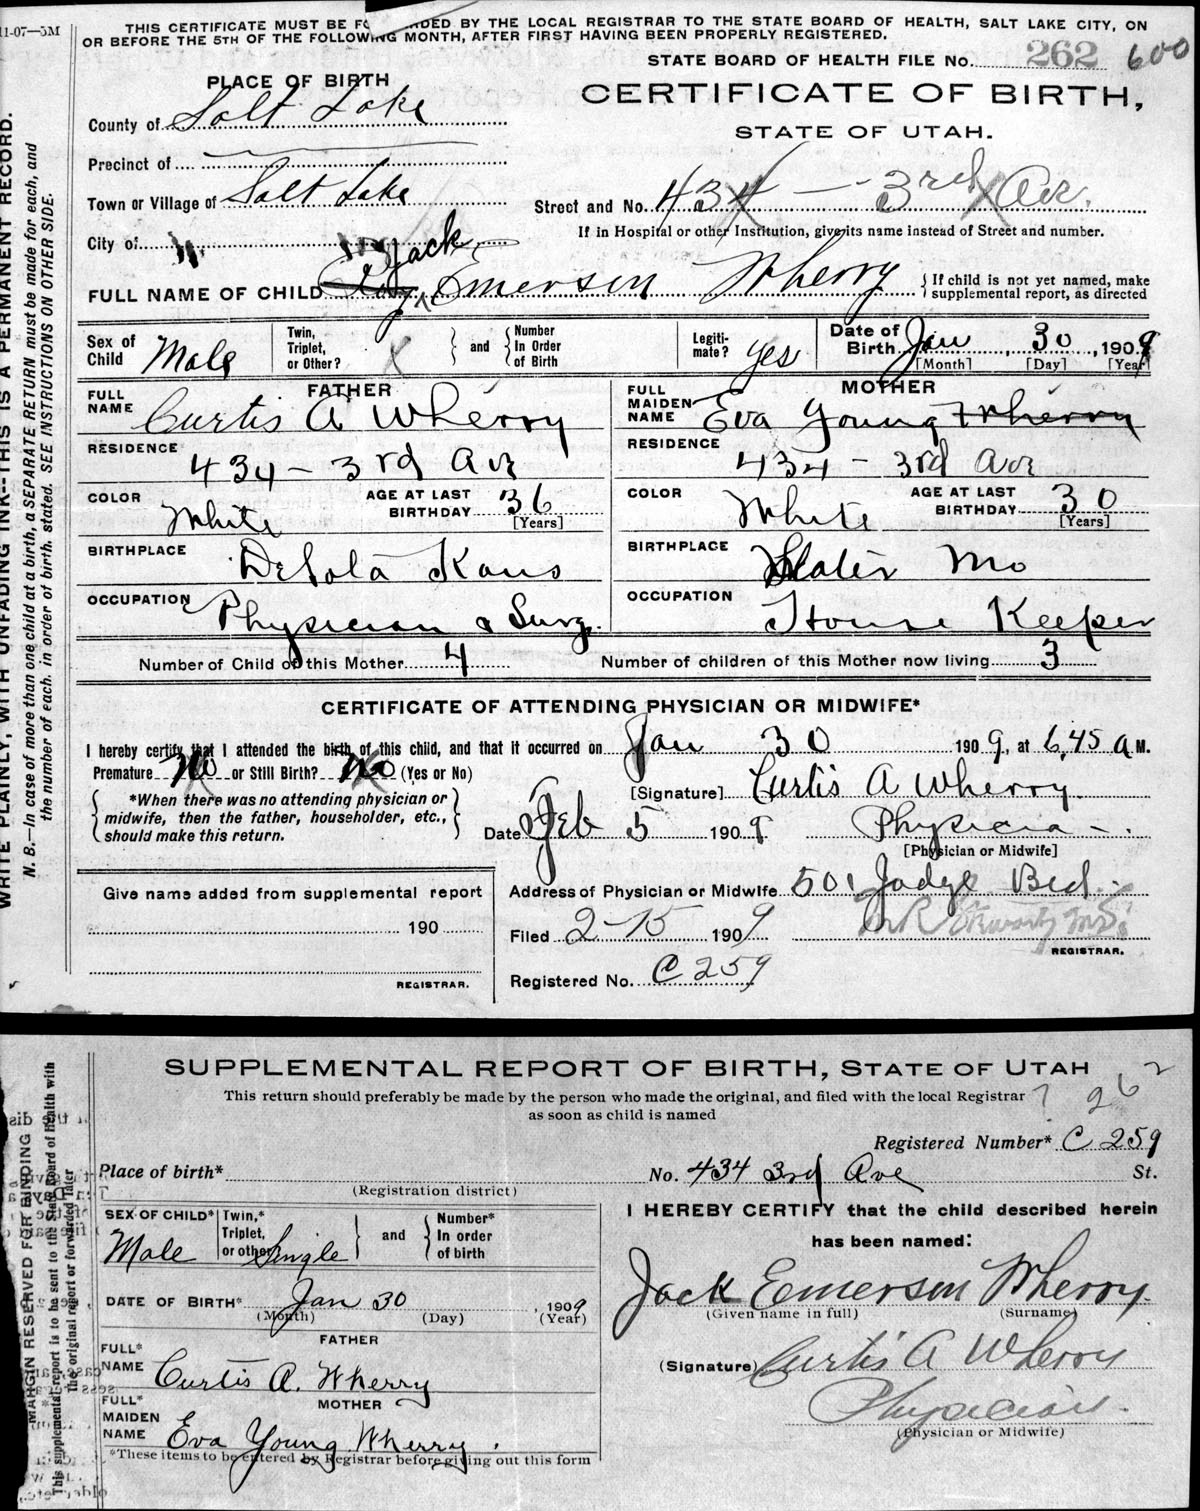 11-07—5M
THIS CERTIFICATE MUST BE FO DED BY THE LOCAL REGISTRAR TO THE STATE BOARD OF HEALTH, SALT LAKE CITY, ON
OR BEFORE THE 5TH OF THE FOLLOWING MONTH, AFTER FIRST HAVING BEEN PROPERLY REGISTERED.
STATE BOARD OF HEALTH FILE No. 262 600
PLACE OF BIRTH
CERTIFICATE OF BIRTH,
STATE OF UTAH.
County of Salt Lake
Precinct of
Town or Village of Salt Lake
Street and No. 434 — 3rd Ave.
City of
If in Hospital or other Institution, give its name instead of Street and number.
FULL NAME OF CHILD Jack Emerson Wherry
If child is not yet named, make
supplemental report, as directed
Sex of Child Male
Twin, Triplet, or Other? X
and
Number In Order of Birth
Legiti-mate? yes
Date of Birth Jan 30, 1909
[Month] [Day] [Year]
FATHER
FULL NAME Curtis A Wherry
RESIDENCE 434 - 3rd Ave
COLOR White
AGE AT LAST BIRTHDAY 36
[Years]
BIRTHPLACE DeSota Kans
OCCUPATION Physician & Surg.
MOTHER
FULL MAIDEN NAME Eva Young Wherry
RESIDENCE 434 - 3rd Ave
COLOR White
AGE AT LAST BIRTHDAY 30
[Years]
BIRTHPLACE Slater Mo
OCCUPATION House Keeper
Number of Child of this Mother 4
Number of children of this Mother now living 3
CERTIFICATE OF ATTENDING PHYSICIAN OR MIDWIFE*
I hereby certify that I attended the birth of this child, and that it occurred on Jan 30 1909, at 6,45 a M.
Premature No or Still Birth? No (Yes or No)
*When there was no attending physician or
midwife, then the father, householder, etc.,
should make this return.
[Signature] Curtis A Wherry.
Date Feb 5 1909 Physician
[Physician or Midwife]
Give name added from supplemental report
190
REGISTRAR.
Address of Physician or Midwife 501 Judge Bld.
Filed 2-15 1909
REGISTRAR.
Registered No. C 259
WRITE PLAINLY, WITH UNFADING INK--THIS IS A PERMANENT RECORD.
N. B.—In case of more than one child at a birth, a SEPARATE RETURN must be made for each, and
the number of each, in order of birth, stated. SEE INSTRUCTIONS ON OTHER SIDE.
SUPPLEMENTAL REPORT OF BIRTH, STATE OF UTAH
This return should preferably be made by the person who made the original, and filed with the local Registrar
as soon as child is named
? 262
Registered Number* C 259
Place of birth*
(Registration district)
No. 434 3rd Ave St.
SEX OF CHILD* Male
Twin,* Triplet, or other Single
and
Number* In order of birth
DATE OF BIRTH* Jan 30, 1909
(Month) (Day) (Year)
FATHER
FULL* NAME Curtis A. Wherry
MOTHER
FULL* MAIDEN NAME Eva Young Wherry.
*These items to be entered by Registrar before giving out this form
I HEREBY CERTIFY that the child described herein
has been named:
Jack Emerson Wherry.
(Given name in full) (Surname)
(Signature) Curtis A Wherry
Physician.
(Physician or Midwife)
MARGIN RESERVED FOR BINDING
This supplemental report is to be sent to the State Board of Health with
the original report or forwarded later